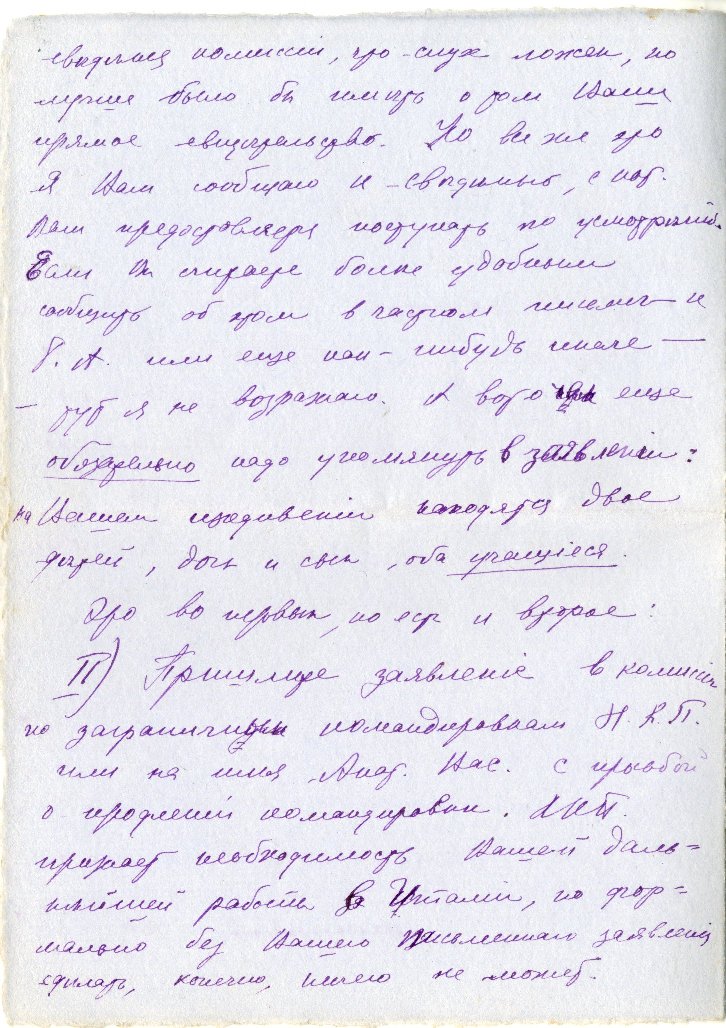 сведенья комиссiи, что слух ложен, но
лучше было бы иметь о том Ваше
прямое свидетельство. Но все же это
я Вам сообщаю к сведенью, с пол.
Вам предоставляется поступать по усмотренiю.
Если Вы считаете более удобным
сообщить об этом в частном письме к
Г. А. или еще как-нибудь иначе —
— тут я не возражаю. А вот о чем еще
обязательно надо упомянуть в заявленiи:
на Вашем иждивенiи находятся двое
детей, дочь и сын, оба учащiеся.
Это во первых, но есть и второе:
II) Пришлите заявленiе в комиссiю
по заграничным командировкам Н.К.П.
или на имя Анат. Вас. с просьбой
о продленiи командировки. НКП.
признает необходимость Вашей даль-
нейшей работы в Италiи, но фор-
мально без Вашего письменнаго заявленiя
сделать, конечно, ничего не может.